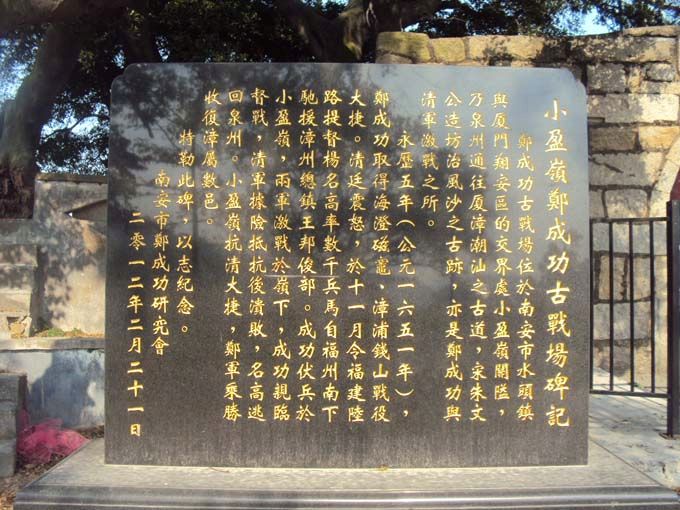 小盈嶺鄭成功古戰場碑記
鄭成功古戰場位於南安市水頭鎮
與厦門翔安區的交界處小盈嶺關隘，
乃泉州通往厦漳潮汕之古道，宋朱文
公造坊治風沙之古跡，亦是鄭成功與
清軍激戰之所。
永歷五年（公元一六五一年），
鄭成功取得海澄磁竈、漳浦錢山戰役
大捷。清廷震怒，於十一月令福建陸
路提督楊名高率數千兵馬自福州南下
馳援漳州總鎮王邦俊部。成功伏兵於
小盈嶺，兩軍激戰於嶺下，成功親臨
督戰，清軍據險抵抗後潰敗，名高逃
回泉州。小盈嶺抗清大捷，鄭軍乘勝
收復漳屬數邑。
特勒此碑，以志紀念。
南安市鄭成功研究會
二零一二年二月二十一日